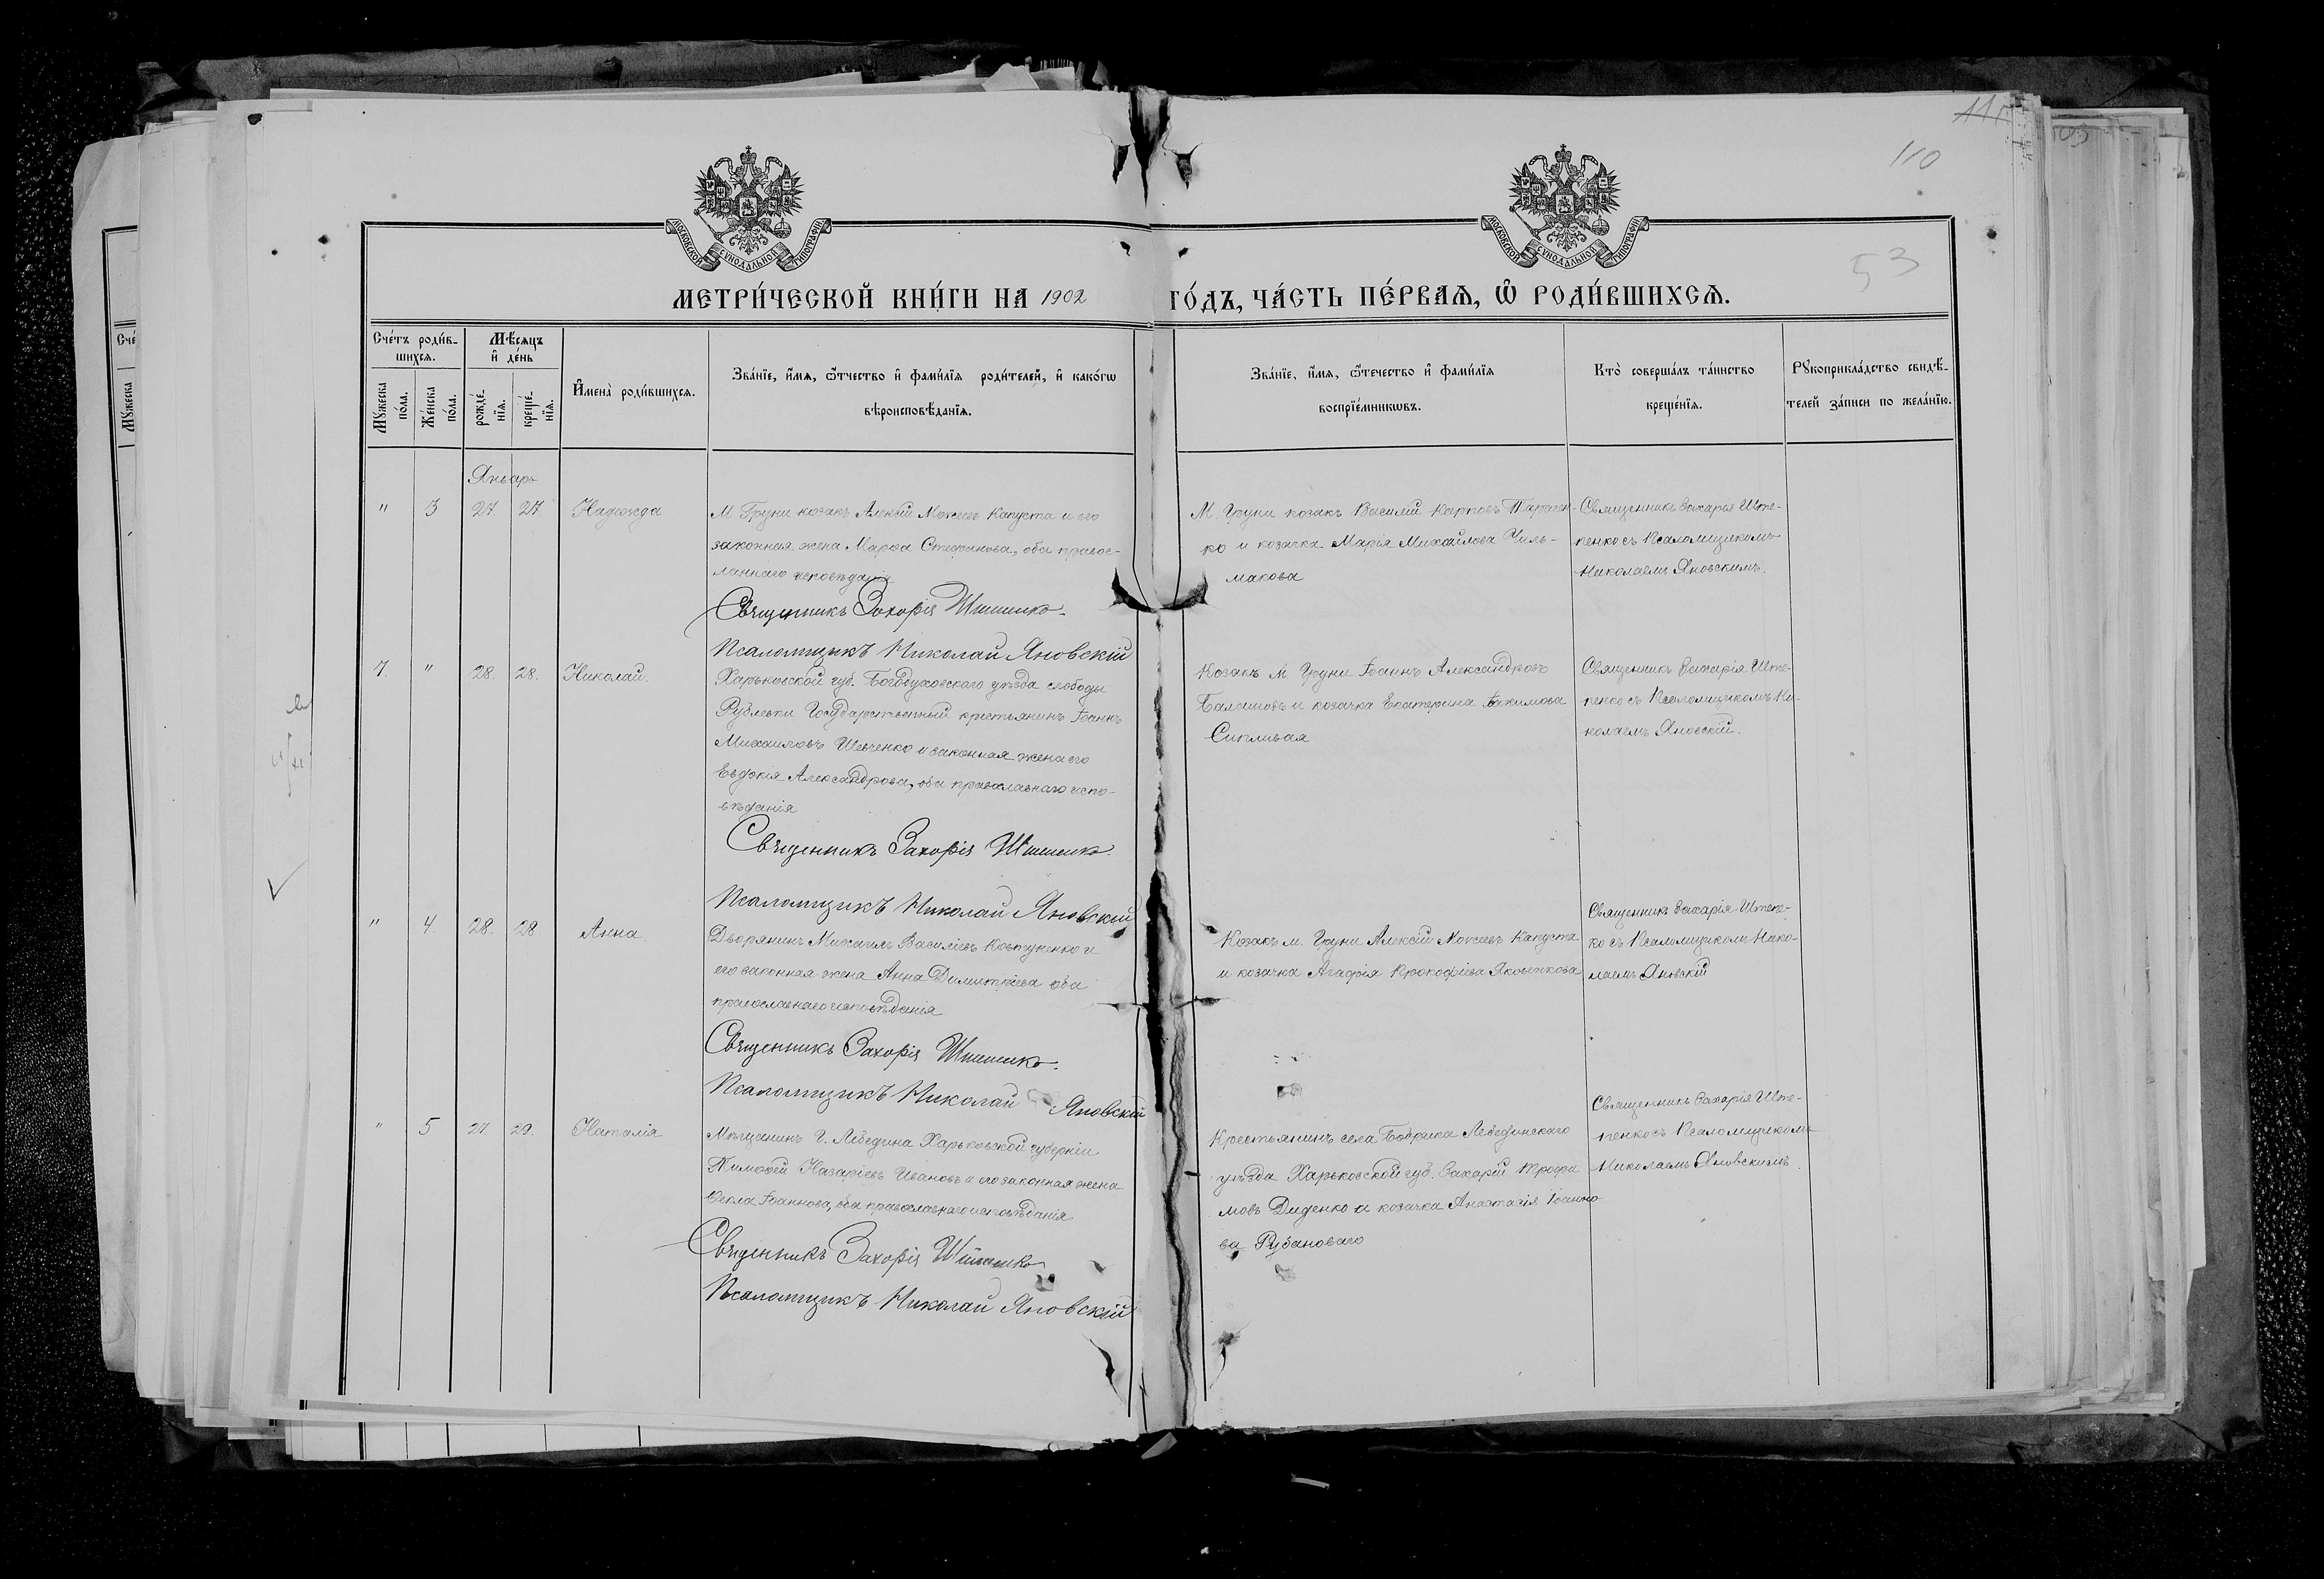 110
53
МОСКОВСКОЙ СУНОДАЛЬНОЙ ТИПОГРАФІИ
МОСКОВСКОЙ СУНОДАЛЬНОЙ ТИПОГРАФІИ
МЕТРИ́ЧЕСКОЙ КНИ́ГИ НА 1902 ГО́ДЪ, ЧА́СТЬ ПЕ́РВАѦ, Ѿ РОДИ́ВШИХСѦ.
Сче́тъ роди́в-
шихсѧ.
Мꙋжеска
по́ла.
Же́нска
по́ла.
Мѣ́сѧцъ
и҆ де́нь
рожде́-
нїѧ.
креще́-
нїѧ.
И҆мена̀ роди́вшихсѧ.
Зва́нїе, и҆́мѧ, ѻ҆́тчество и҆ фами́лїѧ роди́телей, и҆ како́гѡ
вѣроисповѣ́данїѧ.
Зва́нїе, и҆́мѧ, ѻ҆́течество и҆ фами́лїѧ
воспрїе́мникѡвъ.
Кто̀ соверша́лъ та́инство
креще́нїѧ.
Рꙋкоприкла́дство свидѣ́-
телей за́писи по жела́нїю.
Январь
" 3 27. 27. Надежда
М Груни козакъ Алексій Моисеевъ Капуста и его
законная жена Марѳа Стефанова, оба правос-
лавнаго исповѣданія
Священникъ Захарія
Псаломщикъ Николай Яновскій
М. Груни козакъ Василій Карповъ
ко и козачка Марія Михайлова Чиль-
макова
Священникъ Захарія Ште-
пенко съ Псаломщикомъ
Николаемъ Яновскимъ.
7. " 28. 28. Николай.
Харьковской губ. Богодуховскаго уѣзда слободы
Рублевки Государственный крестьянинъ Іоаннъ
Михаиловъ Шевченко и законная жена его
Евдокія Александрова, оба православнаго испо-
вѣданія
Священникъ Захарія
Псаломщикъ Николай Яновскій
Козакъ М Груни Іоаннъ Александровъ
Балашовъ и козачка Екатерина Іоакимова
Сипливая
Священникъ Захарія Ште-
пенко съ Псаломщикомъ Ни-
колаемъ Яновскій.
" 4. 28. 28 Анна
Дворянинъ Михаилъ Василіевъ Ковтуненко и
его законная жена Анна Димитріева оба
православнаго исповѣданія
Священникъ Захарія
Псаломщикъ Николай Яновскій
Козакъ м. Груни Алексій Моисеевъ Капуста
и козачка Агафія Прокофіева Яковенкова
Священникъ Захарія Штепе-
ко съ Псаломщикомъ Нико-
лаемъ Яновскій
" 5 27. 29. Наталія
Мѣщанинъ г. Лебедина Харьковской губерніи
Тимоѳей Назаріевъ Ивановъ и его законная жена
Ѳекла Іоаннова, оба православнаго исповѣданія
Священникъ Захарія
Псаломщикъ Николай Яновскій
Крестьянинъ села Бобрика Лебединскаго
уѣзда Харьковской губ. Захарій Трофи
мовъ Диденко и козачка Анастасія Іоанно-
ва
Священникъ Захарія Ште-
пенко съ Псаломщикомъ
Николаемъ Яновскимъ.